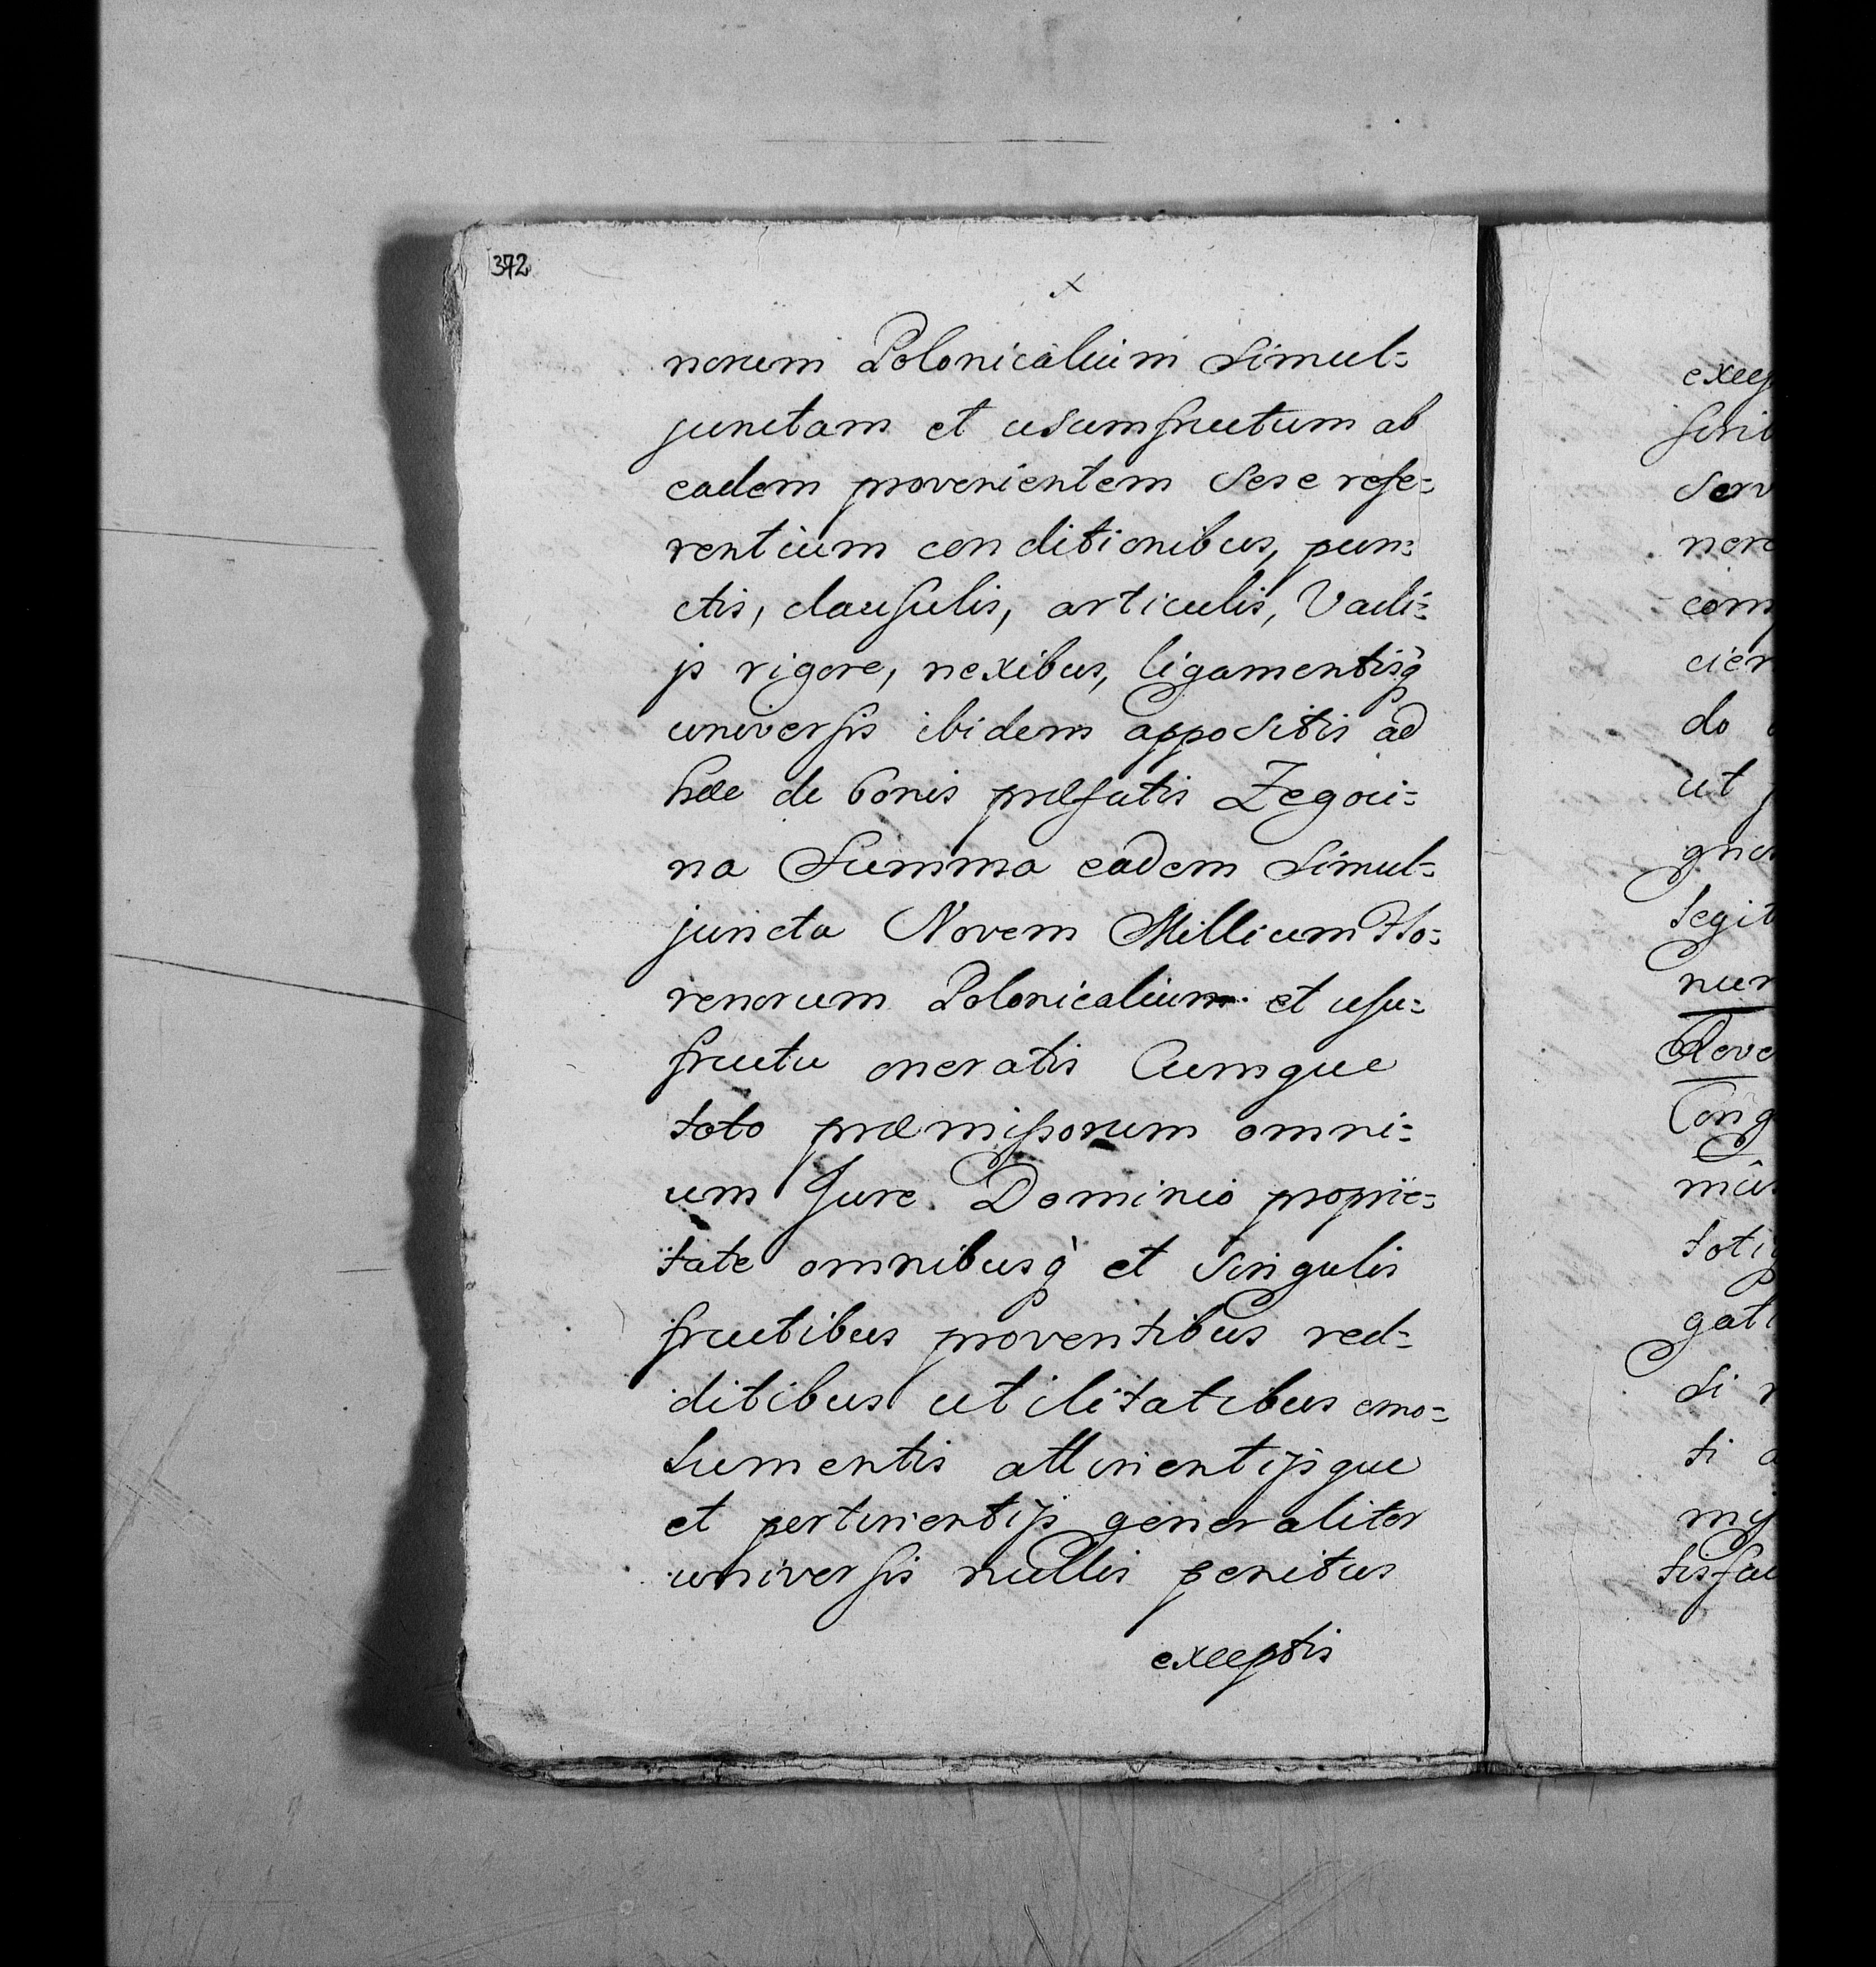 372
norum Polonicalium simul=
junctam et usumfructum ab
eadem provenientem sese refe=
rentium conditionibus, pun=
ctis, clausulis, articulis, Vadi=
js rigore, nexibus, ligamentisq̀
universis ibidem appositis ad
hæc de bonis præfatis Zegoci=
na Summa eadem simul=
juncta Novem Millium Flo=
renorum Polonicalium et usu=
fructu oneratis Cumque
toto præmissorum omni=
um Jure Dominio proprie=
tate omnibusq̀ et singulis
fructibus proventibus red=
ditibus utilitatibus emo=
lumentis attinentijsque
et pertinentijs generaliter
universis nullis penitus
exceptis